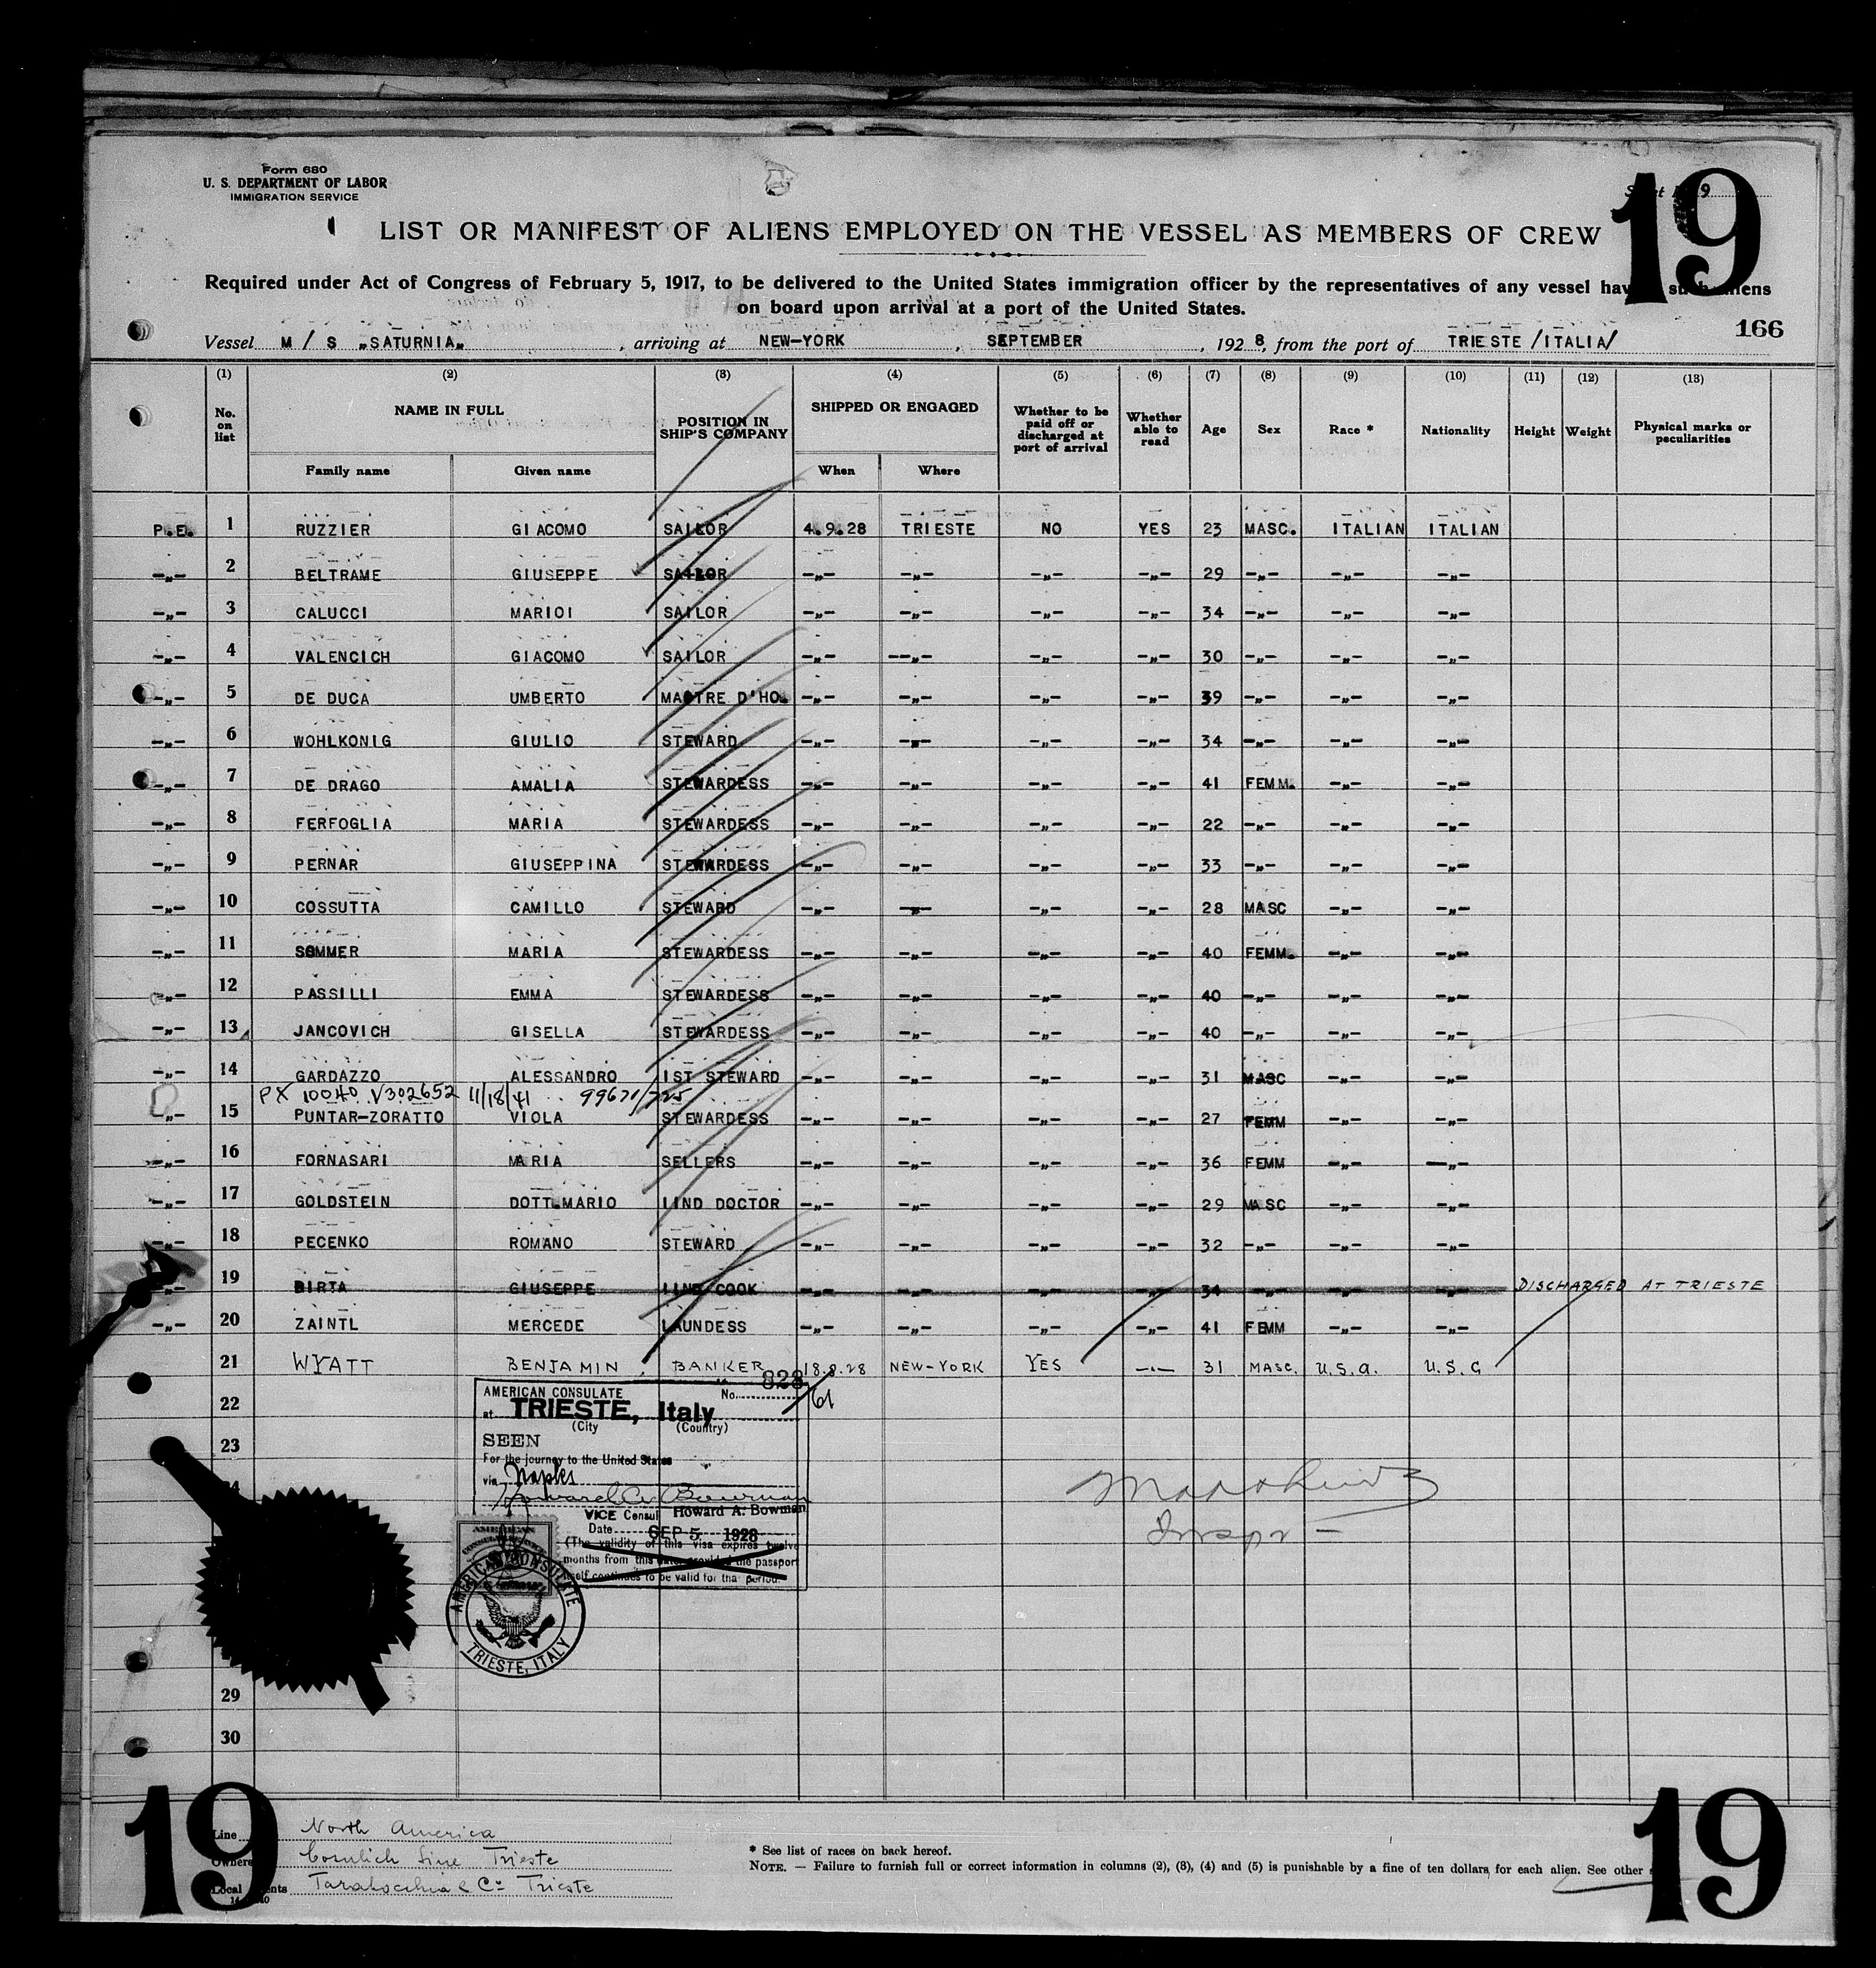 Form 680
U. S. DEPARTMENT OF LABOR
IMMIGRATION SERVICE
19
LIST OR MANIFEST OF ALIENS EMPLOYED ON THE VESSEL AS MEMBERS OF CREW
Required under Act of Congress of February 5, 1917, to be delivered to the United States immigration officer by the representatives of any vessel
on board upon arrival at a port of the United States.
166
Vessel M / S „SATURNIA„ , arriving at NEW-YORK , SEPTEMBER , 192 8, from the port of TRIESTE /ITALIA/
(1) (2) (3) (4) (5) (6) (7) (8) (9) (10) (11) (12) (13)
No. on list NAME IN FULL Family name Given name POSITION IN SHIP'S COMPANY SHIPPED OR ENGAGED When Where Whether to be paid off or discharged at port of arrival Whether able to read Age Sex Race * Nationality Height Weight Physical marks or peculiarities
P.E. 1 RUZZIER GIACOMO SAILOR 4.9.28 TRIESTE NO YES 23 MASC. ITALIAN ITALIAN
-„- 2 BELTRAME GIUSEPPE SAILOR -„- -„- -„- -„- 29 -„- -„- -„-
-„- 3 CALUCCI MARIOI SAILOR -„- -„- -„- -„- 34 -„- -„- -„-
-„- 4 VALENCICH GIACOMO SAILOR -„- --„- -„- -„- 30 -„- -„- -„-
-„- 5 DE DUCA UMBERTO MAITRE D'HO. -„- -„- -„- -„- 39 -„- -„- -„-
-„- 6 WOHLKONIG GIULIO STEWARD -„- -„- -„- -„- 34 -„- -„- -„-
-„- 7 DE DRAGO AMALIA STEWARDESS -„- -„- -„- -„- 41 FEMM. -„- -„-
-„- 8 FERFOGLIA MARIA STEWARDESS -„- -„- -„- -„- 22 -„- -„- -„-
-„- 9 PERNAR GIUSEPPINA STEWARDESS -„- -„- -„- -„- 33 -„- -„- -„-
-„- 10 COSSUTTA CAMILLO STEWARD -„- -„- -„- -„- 28 MASC -„- -„-
-„- 11 SOMMER MARIA STEWARDESS -„- -„- -„- -„- 40 FEMM. -„- -„-
-„- 12 PASSILLI EMMA STEWARDESS -„- -„- -„- -„- 40 -„- -„- -„-
-„- 13 JANCOVICH GISELLA STEWARDESS -„- -„- -„- -„- 40 -„- -„- -„-
-„- 14 GARDAZZO ALESSANDRO IST STEWARD -„- -„- -„- -„- 31 MASC -„- -„-
PX 10040 V302652 11/18/41 99671/725
-„- 15 PUNTAR-ZORATTO VIOLA STEWARDESS -„- -„- -„- -„- 27 FEMM -„- -„-
-„- 16 FORNASARI MARIA SELLERS -„- -„- -„- -„- 36 FEMM -„- -„-
-„- 17 GOLDSTEIN DOTT.MARIO IIND DOCTOR -„- -„- -„- -„- 29 MASC -„- -„-
-„- 18 PECENKO ROMANO STEWARD -„- -„- -„- -„- 32 -„- -„- -„-
-„- 19 BIRTA GIUSEPPE IIND COOK -„- -„- -„- -„- 34 -„- -„- -„- DISCHARGED AT TRIESTE
-„- 20 ZAINTL MERCEDE LAUNDESS -„- -„- -„- -„- 41 FEMM -„- -„-
21 WYATT BENJAMIN BANKER 18.8.28 NEW-YORK YES -„- 31 MASC. U.S.A. U.S.C
22
23
29
30
AMERICAN CONSULATE No. 828
at TRIESTE, Italy
(City (Country)
SEEN
For the journey to the United States
via Naples
Howard A. Bowman
VICE Consul Howard A. Bowman
Date SEP 5 1928
(The validity of this visa expires twelve
months from this date provided the passport
itself continues to be valid for that period.
AMERICAN CONSULATE
TRIESTE, ITALY
Inspr -
19
Line North America
Owners Cosulich Line Trieste
Local Agents Tarabocchia & Co Trieste
* See list of races on back hereof.
NOTE. — Failure to furnish full or correct information in columns (2), (3), (4) and (5) is punishable by a fine of ten dollars for each alien. See other
19